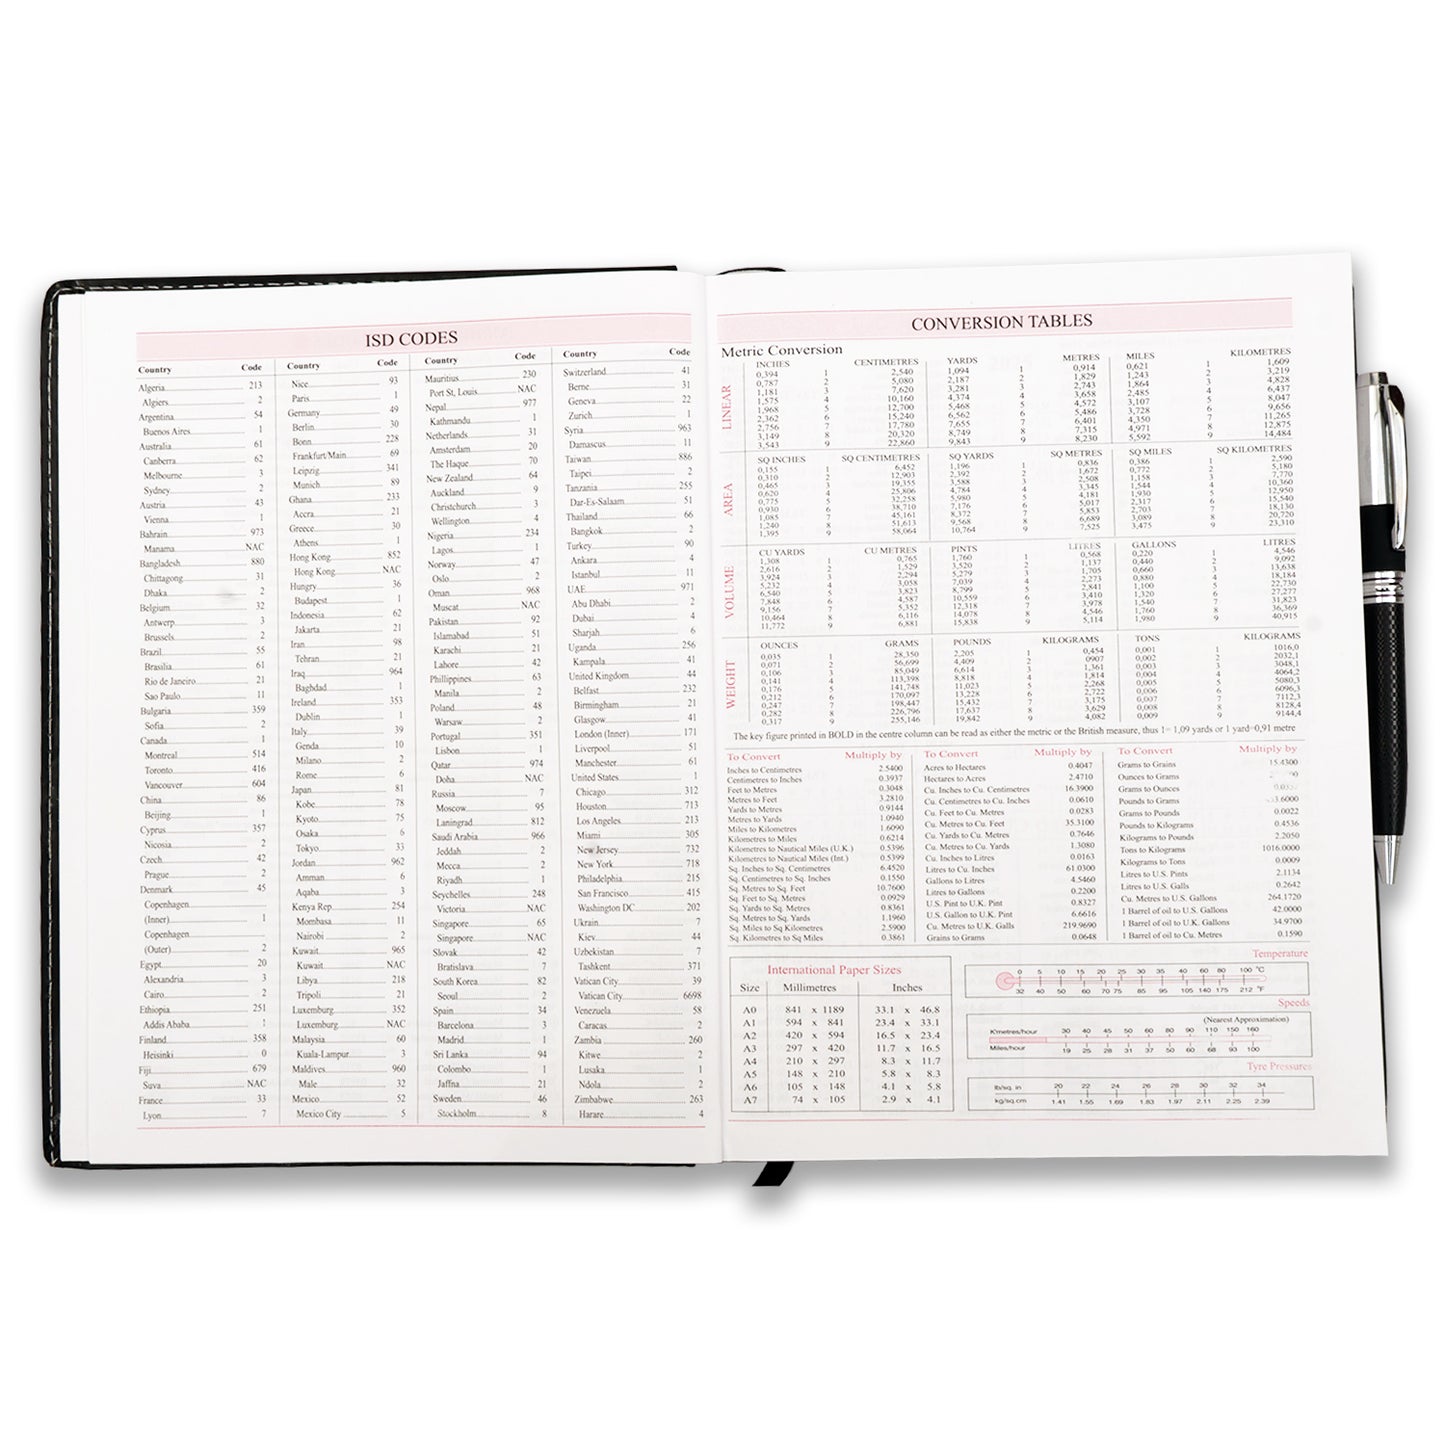 ISD CODES
Country Code
Algeria 213
Algiers 2
Argentina 54
Buenos Aires 1
Australia 61
Canberra 62
Melbourne 3
Sydney 2
Austria 43
Vienna 1
Bahrain 973
Manama NAC
Bangladesh 880
Chittagong 31
Dhaka 2
Belgium 32
Antwerp 3
Brussels 2
Brazil 55
Brasilia 61
Rio de Janeiro 21
Sao Paulo 11
Bulgaria 359
Sofia 2
Canada 1
Montreal 514
Toronto 416
Vancouver 604
China 86
Beijing 1
Cyprus 357
Nicosia 2
Czech 42
Prague 2
Denmark 45
Copenhagen
(Inner) 1
Copenhagen
(Outer) 2
Egypt 20
Alexandria 3
Cairo 2
Ethiopia 251
Addis Ababa 1
Finland 358
Heisinki 0
Fiji 679
Suva NAC
France 33
Lyon 7
Country Code
Nice 93
Paris 1
Germany 49
Berlin 30
Bonn 228
Frankfurt/Main 69
Leipzig 341
Munich 89
Ghana 233
Accra 21
Greece 30
Athens 1
Hong Kong 852
Hong Kong NAC
Hungry 36
Budapest 1
Indonesia 62
Jakarta 21
Iran 98
Tehran 21
Iraq 964
Baghdad 1
Ireland 353
Dublin 1
Italy 39
Genda 10
Milano 2
Rome 6
Japan 81
Kobe 78
Kyoto 75
Osaka 6
Tokyo 33
Jordan 962
Amman 6
Aqaba 3
Kenya Rep. 254
Mombasa 11
Nairobi 2
Kuwait 965
Kuwait NAC
Libya 218
Tripoli 21
Luxemburg 352
Luxemburg NAC
Malaysia 60
Kuala-Lampur 3
Maldives 960
Male 32
Mexico 52
Mexico City 5
Country Code
Mauritius 230
Port St, Louis NAC
Nepal 977
Kathmandu 1
Netherlands 31
Amsterdam 20
The Haque 70
New Zealand 64
Auckland 9
Christchurch 3
Wellington 4
Nigeria 234
Lagos 1
Norway 47
Oslo 2
Oman 968
Muscat NAC
Pakistan 92
Islamabad 51
Karachi 21
Lahore 42
Phillippines 63
Manila 2
Poland 48
Warsaw 2
Portugal 351
Lisbon 1
Qatar 974
Doha NAC
Russia 7
Moscow 95
Laningrad 812
Saudi Arabia 966
Jeddah 2
Mecca 2
Riyadh 1
Seychelles 248
Victoria NAC
Singapore 65
Singapore NAC
Slovak 42
Bratislava 7
South Korea 82
Seoul 2
Spain 34
Barcelona 3
Madrid 1
Sri Lanka 94
Colombo 1
Jaffna 21
Sweden 46
Stockholm 8
Country Code
Switzerland 41
Berne 31
Geneva 22
Zurich 1
Syria 963
Damascus 11
Taiwan 886
Taipei 2
Tanzania 255
Dar-Es-Salaam 51
Thailand 66
Bangkok 2
Turkey 90
Ankara 4
Istanbul 11
UAE 971
Abu Dhabi 2
Dubai 4
Sharjah 6
Uganda 256
Kampala 41
United Kingdom 44
Belfast 232
Birmingham 21
Glasgow 41
London (Inner) 171
Liverpool 51
Manchester 61
United States 1
Chicago 312
Houston 713
Los Angeles 213
Miami 305
New Jersey 732
New York 718
Philadelphia 215
San Francisco 415
Washington DC 202
Ukrain 7
Kiev 44
Uzbekistan 7
Tashkent 371
Vatican City 39
Vatican City 6698
Venezuela 58
Caracas 2
Zambia 260
Kitwe 2
Lusaka 1
Ndola 2
Zimbabwe 263
Harare 4
CONVERSION TABLES
Metric Conversion
LINEAR
INCHES CENTIMETRES YARDS METRES MILES KILOMETRES
0,394 1 2,540 1,094 1 0,914 0,621 1 1,609
0,787 2 5,080 2,187 2 1,829 1,243 2 3,219
1,181 3 7,620 3,281 3 2,743 1,864 3 4,828
1,575 4 10,160 4,374 4 3,658 2,485 4 6,437
1,968 5 12,700 5,468 5 4,572 3,107 5 8,047
2,362 6 15,240 6,562 6 5,486 3,728 6 9,656
2,756 7 17,780 7,655 7 6,401 4,350 7 11,265
3,149 8 20,320 8,749 8 7,315 4,971 8 12,875
3,543 9 22,860 9,843 9 8,230 5,592 9 14,484
AREA
SQ INCHES SQ CENTIMETRES SQ YARDS SQ METRES SQ MILES SQ KILOMETRES
0,155 1 6,452 1,196 1 0,836 0,386 1 2,590
0,310 2 12,903 2,392 2 1,672 0,772 2 5,180
0,465 3 19,355 3,588 3 2,508 1,158 3 7,770
0,620 4 25,806 4,784 4 3,345 1,544 4 10,360
0,775 5 32,258 5,980 5 4,181 1,930 5 12,950
0,930 6 38,710 7,176 6 5,017 2,317 6 15,540
1,085 7 45,161 8,372 7 5,853 2,703 7 18,130
1,240 8 51,613 9,568 8 6,689 3,089 8 20,720
1,395 9 58,064 10,764 9 7,525 3,475 9 23,310
VOLUME
CU YARDS CU METRES PINTS LITRES GALLONS LITRES
1,308 1 0,765 1,760 1 0,568 0,220 1 4,546
2,616 2 1,529 3,520 2 1,137 0,440 2 9,092
3,924 3 2,294 5,279 3 1,705 0,660 3 13,638
5,232 4 3,058 7,039 4 2,273 0,880 4 18,184
6,540 5 3,823 8,799 5 2,841 1,100 5 22,730
7,848 6 4,587 10,559 6 3,410 1,320 6 27,277
9,156 7 5,352 12,318 7 3,978 1,540 7 31,823
10,464 8 6,116 14,078 8 4,546 1,760 8 36,369
11,772 9 6,881 15,838 9 5,114 1,980 9 40,915
WEIGHT
OUNCES GRAMS POUNDS KILOGRAMS TONS KILOGRAMS
0,035 1 28,350 2,205 1 0,454 0,001 1 1016,0
0,071 2 56,699 4,409 2 0907 0,002 2 2032,1
0,106 3 85,049 6,614 3 1,361 0,003 3 3048,1
0,141 4 113,398 8,818 4 1,814 0,004 4 4064,2
0,176 5 141,748 11,023 5 2,268 0,005 5 5080,3
0,212 6 170,097 13,228 6 2,722 0,006 6 6096,3
0,247 7 198,447 15,432 7 3,175 0,007 7 7112,3
0,282 8 226,796 17,637 8 3,629 0,008 8 8128,4
0,317 9 255,146 19,842 9 4,082 0,009 9 9144,4
The key figure printed in BOLD in the centre column can be read as either the metric or the British measure, thus 1= 1,09 yards or 1 yard=0,91 metre
To Convert Multiply by
Inches to Centimetres 2.5400
Centimetres to Inches 0.3937
Feet to Metres 0.3048
Metres to Feet 3.2810
Yards to Metres 0.9144
Metres to Yards 1.0940
Miles to Kilometres 1.6090
Kilometres to Miles 0.6214
Kilometres to Nautical Miles (U.K.) 0.5396
Kilometres to Nautical Miles (Int.) 0.5399
Sq. Inches to Sq. Centimetres 6.4520
Sq. Centimetres to Sq. Inches 0.1550
Sq. Metres to Sq. Feet 10.7600
Sq. Feet to Sq. Metres 0.0929
Sq. Yards to Sq. Metres 0.8361
Sq. Metres to Sq. Yards 1.1960
Sq. Miles to Sq Kilometres 2.5900
Sq. Kilometres to Sq Miles 0.3861
To Convert Multiply by
Acres to Hectares 0.4047
Hectares to Acres 2.4710
Cu. Inches to Cu. Centimetres 16.3900
Cu. Centimetres to Cu. Inches 0.0610
Cu. Feet to Cu. Metres 0.0283
Cu. Metres to Cu. Feet 35.3100
Cu. Yards to Cu. Metres 0.7646
Cu. Metres to Cu. Yards 1.3080
Cu. Inches to Litres 0.0163
Litres to Cu. Inches 61.0300
Gallons to Litres 4.5460
Litres to Gallons 0.2200
U.S. Pint to U.K. Pint 0.8327
U.S. Gallon to U.K. Pint 6.6616
Cu. Metres to U.K. Galls 219.9690
Grains to Grams 0.0648
To Convert Multiply by
Grams to Grains 15.4300
Ounces to Grams
Grams to Ounces
Pounds to Grams
Grams to Pounds 0.0022
Pounds to Kilograms 0.4536
Kilograms to Pounds 2.2050
Tons to Kilograms 1016.0000
Kilograms to Tons 0.0009
Litres to U.S. Pints 2.1134
Litres to U.S. Galls 0.2642
Cu. Metres to U.S. Gallons 264.1720
1 Barrel of oil to U.S. Gallons 42.0000
1 Barrel of oil to U.K. Gallons 34.9700
1 Barrel of oil to Cu. Metres 0.1590
International Paper Sizes
Size Millimetres Inches
A0 841 x 1189 33.1 x 46.8
A1 594 x 841 23.4 x 33.1
A2 420 x 594 16.5 x 23.4
A3 297 x 420 11.7 x 16.5
A4 210 x 297 8.3 x 11.7
A5 148 x 210 5.8 x 8.3
A6 105 x 148 4.1 x 5.8
A7 74 x 105 2.9 x 4.1
Temperature
0 5 10 15 20 25 30 35 40 60 80 100 °C
32 40 50 60 70 75 85 95 105 140 175 212 °F
Speeds
(Nearest Approximation)
K'metres/hour 30 40 45 50 60 80 90 110 150 160
Miles/hour 19 25 28 31 37 50 60 68 93 100
Tyre Pressures
lb/sq. in 20 22 24 26 28 30 32 34
kg/sq.cm 1.41 1.55 1.69 1.83 1.97 2.11 2.25 2.39